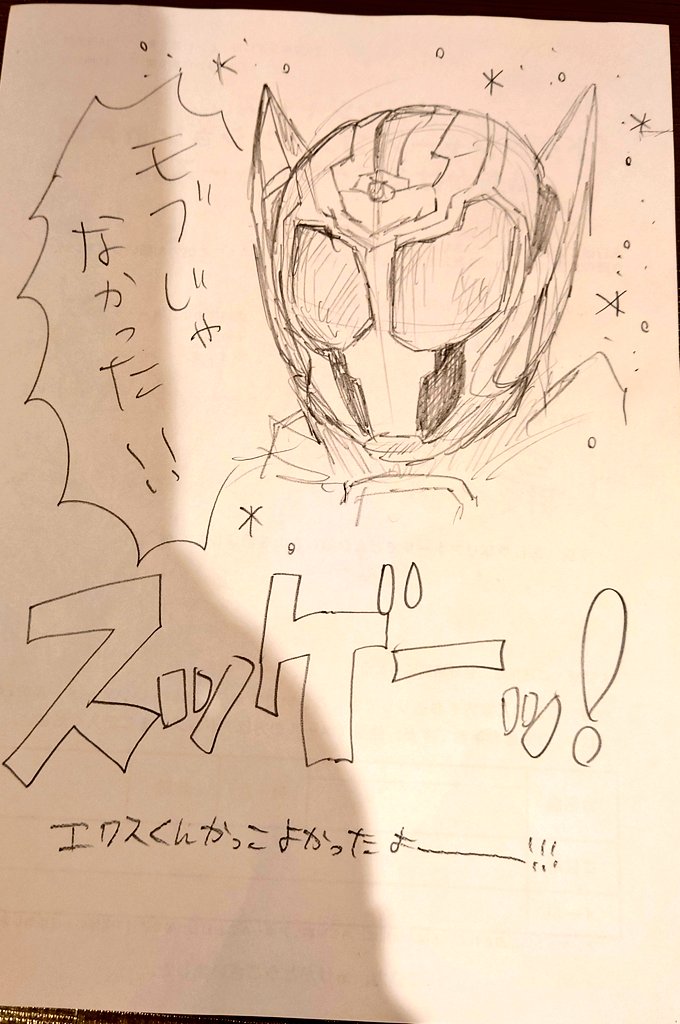 モブじゃ
なかった!!
スッゲーッ!
エワスくんかっこよかったよー!!!